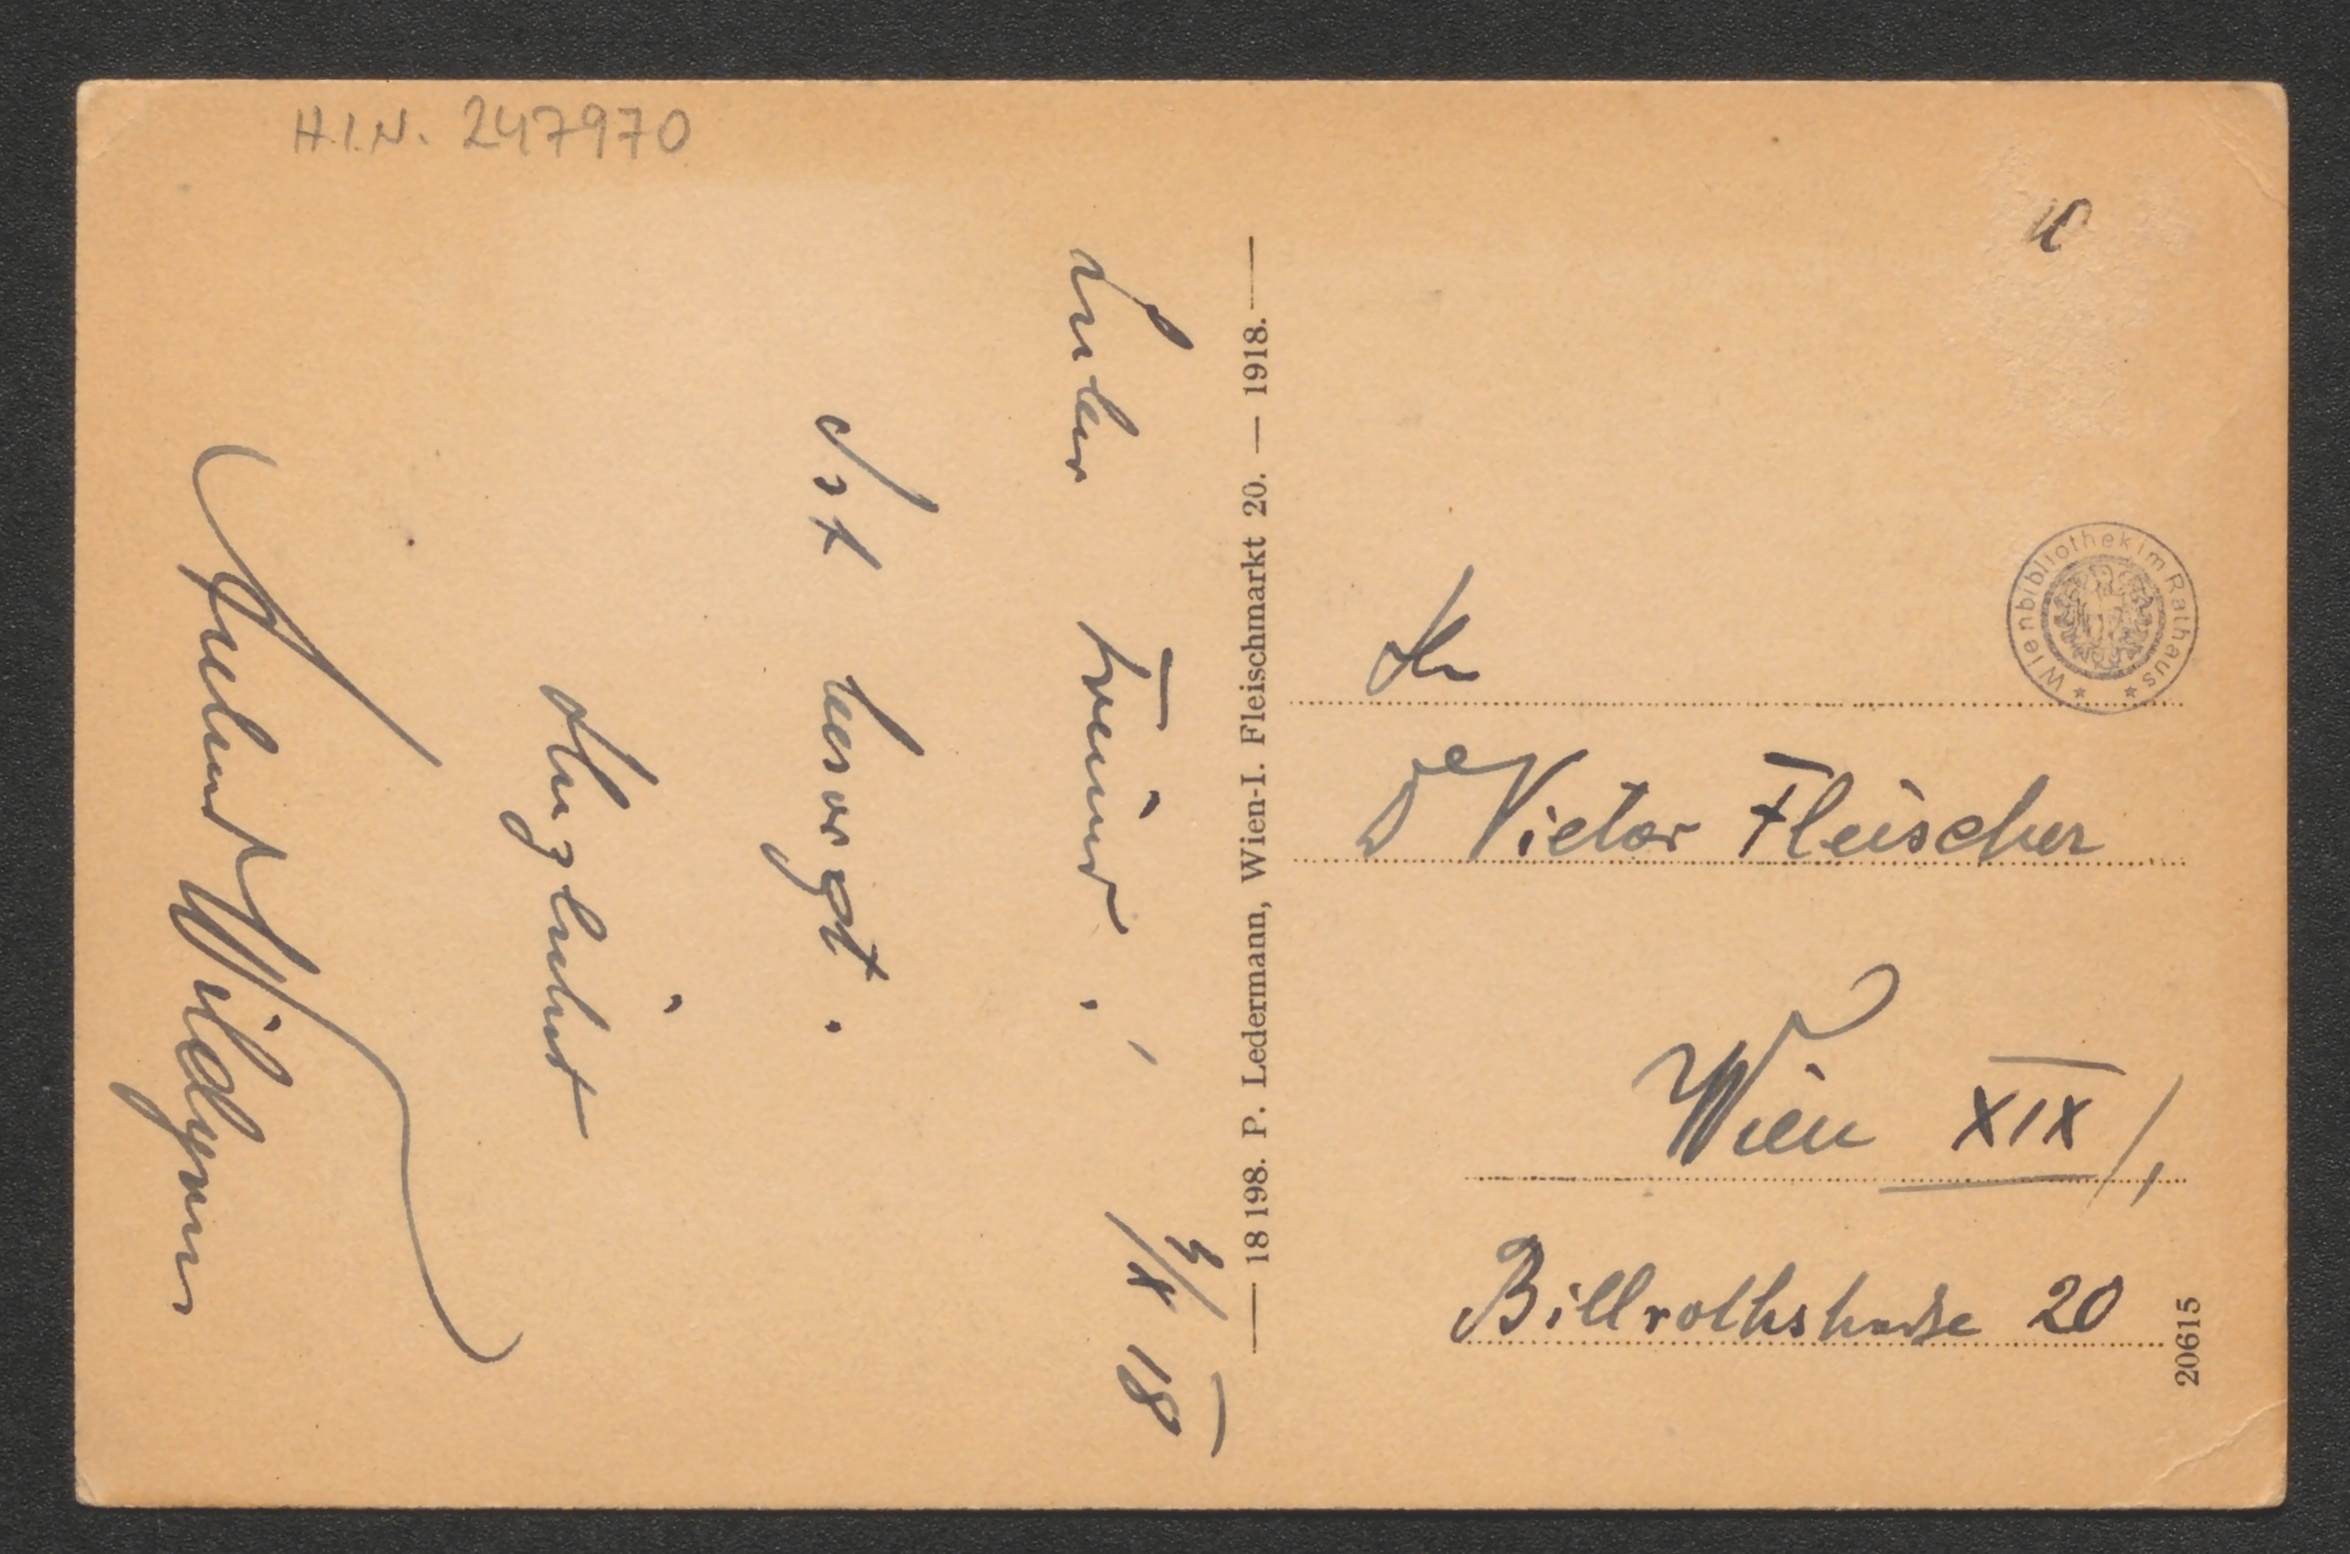 H.I.N. 247970
Lieber Freund!
9/X 18
Ist besorgt.
Herzlichst
Wildgans
— 18 198. P. Ledermann, Wien-I. Fleischmarkt 20. — 1918. —
Wienbibliothek im Rathaus
Hr
Dr Victor Fleischer
Wien XIX/1
Billrothstraße 20
20615